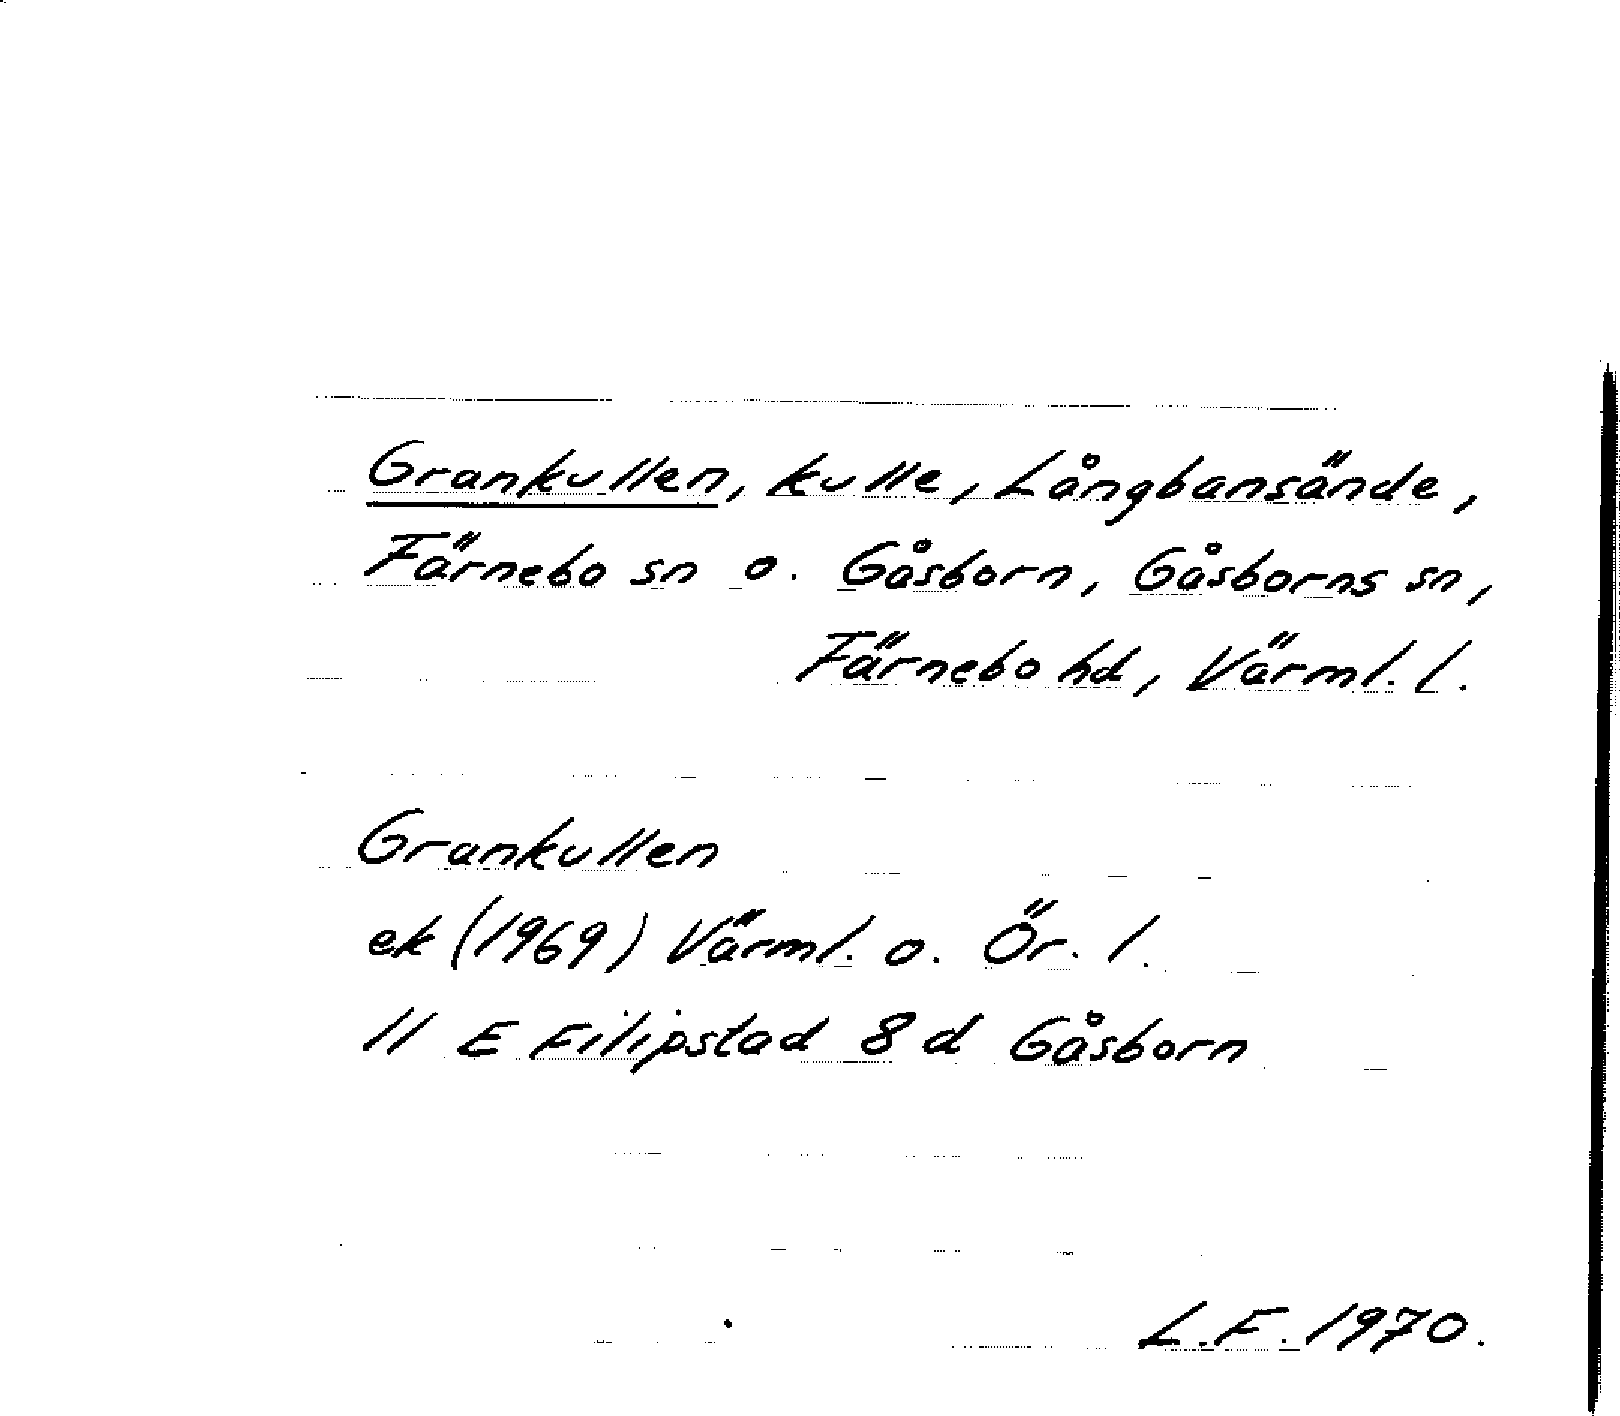 Grankullen, kulle, Långbansände,
Färnebo sn o. Gåsborn, Gåsborns sn,
Färnebo hd, Värml. l.
Grankullen
ek (1969) Värml. o. Ör. l.
11 E Filipstad 8 d Gåsborn
L.F. 1970.